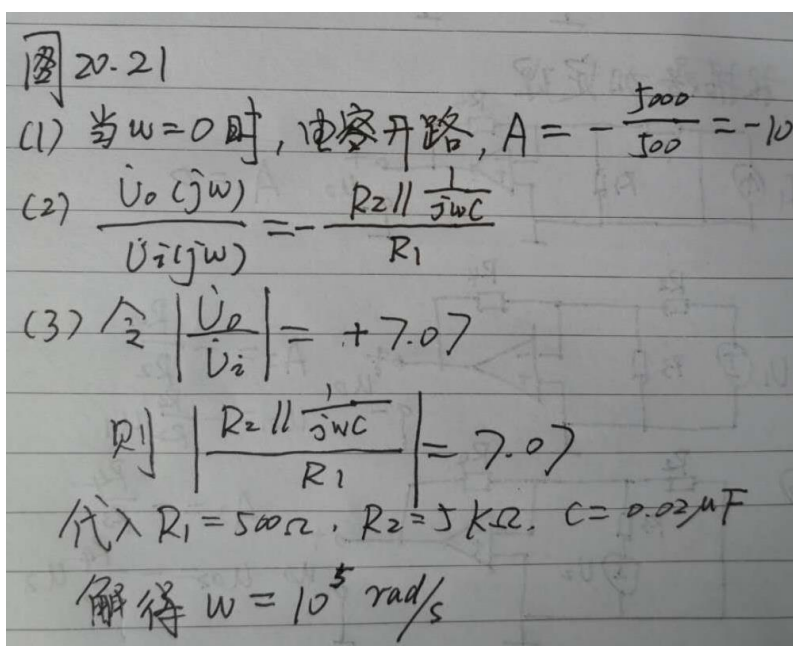 图20.21
(1) 当w=0时,电容开路, A = -5000/500 = -10
(2) U̇o(jw)/U̇i(jw) = - (R2 // 1/jwC)/R1
(3) 令 |U̇o/U̇i| = +7.07
则 |(R2 // 1/jwC)/R1| = 7.07
代入 R1=500Ω, R2=5KΩ, C=0.02μF
解得 w = 10^5 rad/s